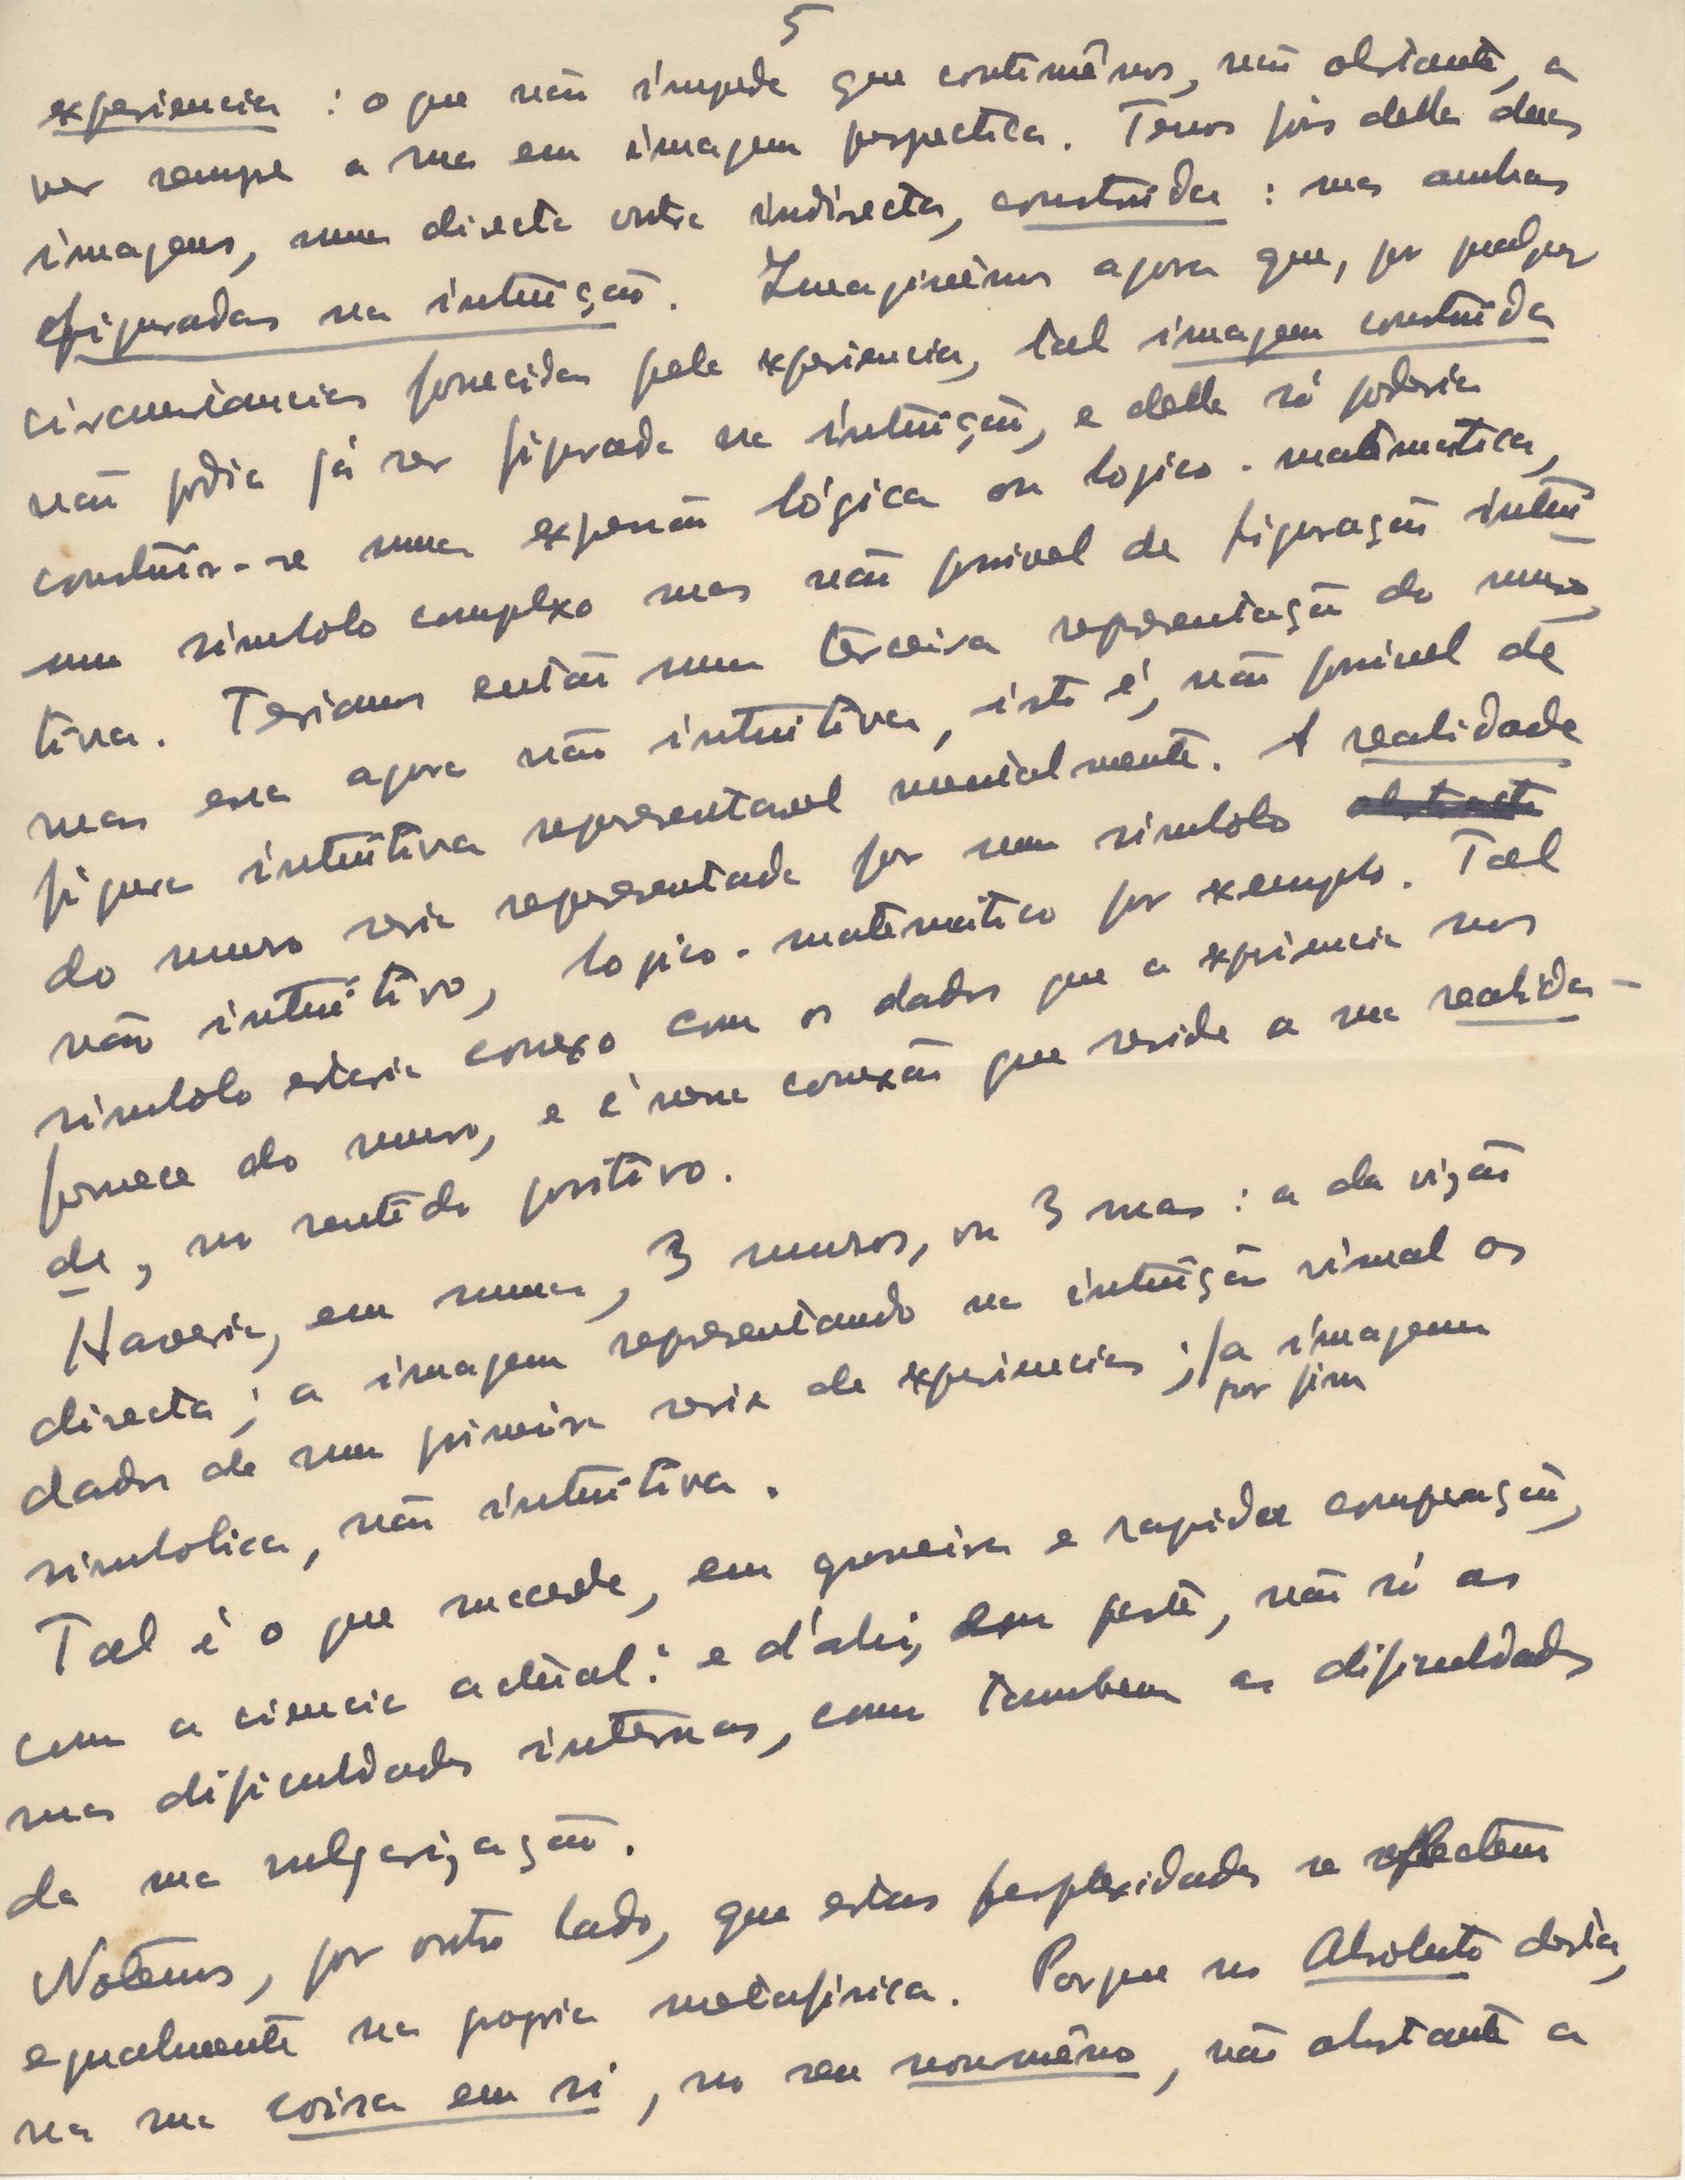 5
experiencia : o que não impede que continuêmos, não obstante, a
ver sempre a rua em imagem perspectica. Temos pois della duas
imagens, uma directa outra indirecta, construida : mas ambas
figuradas na intuição. Imaginêmos agora que, por qualquer
circunstancias fornecidas pela experiencia, tal imagem construida
não podia já ser figurada na intuição, e della só poderia
construir-se uma expressão lógica ou logico-matematica,
um simbolo complexo mas não possivel de figuração intui
tiva. Teriamos então uma terceira representação do muro,
mas essa agora não intuitiva, isto é, não possivel de
figura intuitiva representavel mentalmente. A realidade
do muro seria representada por um simbolo abstracto
não intuitivo, logico-matemático por exemplo. Tal
simbolo estaria conexo com os dados que a experiencia nos
fornece do muro, e é nessa conexão que reside a sua realida-
de, no sentido positivo.
Haveria, em suma, 3 muros, ou 3 ruas : a da visão
directa ; a imagem representando na intuição visual os
dados de uma primeira serie de experiencias ; / a imagem
por fim
simbolica, não intuitiva.
Tal é o que succede, em grosseira e rapida comparação,
com a ciencia actual : e d'ahi, em parte, não só as
suas dificuldades internas, como tambem as dificuldades
da sua vulgarização.
Notemos, por outro lado, que estas perplexidades se reflectem
egualmente na propria metafisica. Porque no Absoluto desta,
na sua coisa em si, no seu noumêno, não obstante a